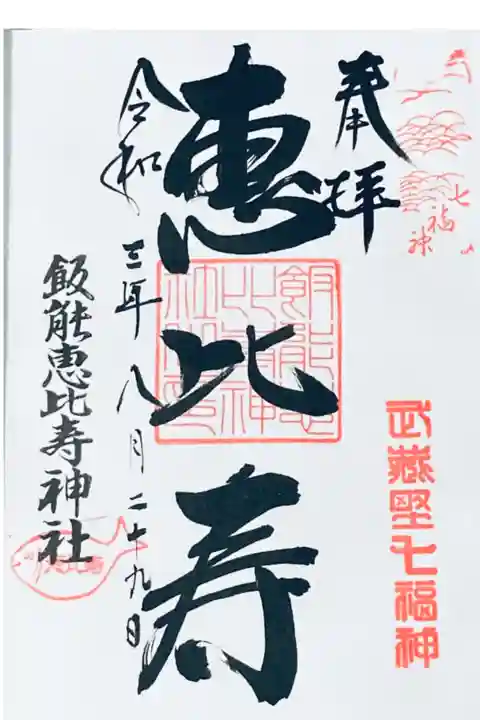 奉拝
七福神
武蔵野七福神
恵比寿
飯能恵比寿神社
令和三年八月二十九日
飯能恵比寿神社